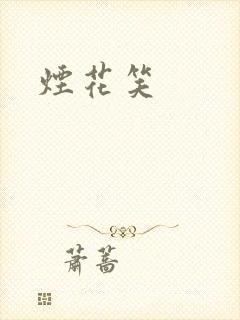 煙花笑
蕭薔